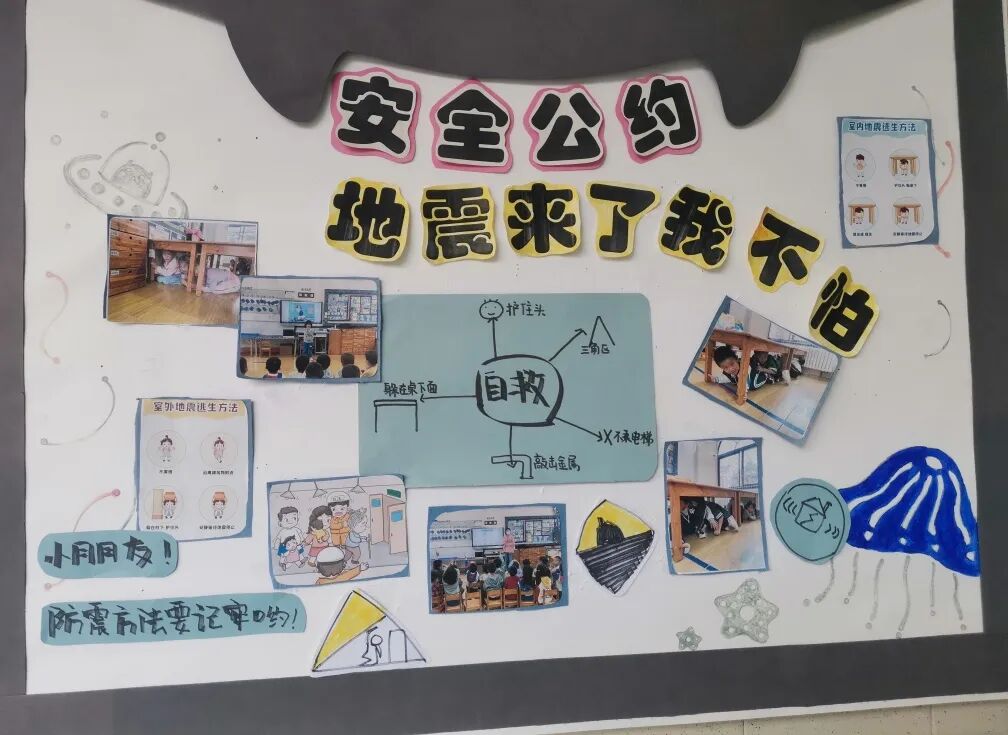 安全公约
地震来了我不怕
室内地震逃生方法
护住头
三角区
自救
躲在桌下面
X不乘电梯
敲击金属
室外地震逃生方法
小朋友！
防震方法要记牢哟！